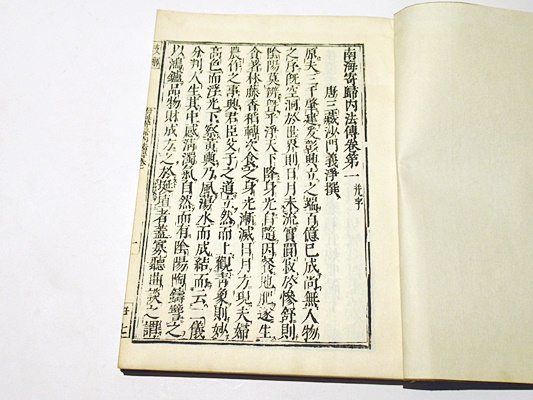 南海寄歸內法傳卷第一
唐三藏沙門義淨撰
原夫三千肇建爰彰興立之端百億已成尚無人物
之序旣空洞於世界則日月未流實閴寂於慘舒則
陰陽莫辨曁乎淨天下降身光自隨因餐地肥遂生
貪著林藤香稻轉次食之身光漸滅日月方現夫婦
農作之事興君臣父子之道立然而上觀靑象則妙
高色而浮光下察黃輿乃風蕩水而成結而云二儀
分判人生其中感淸濁氣自然而有陰陽陶鑄譬之
以鴻鑪品物財成方之於埏埴者蓋寡聽曲談之謂